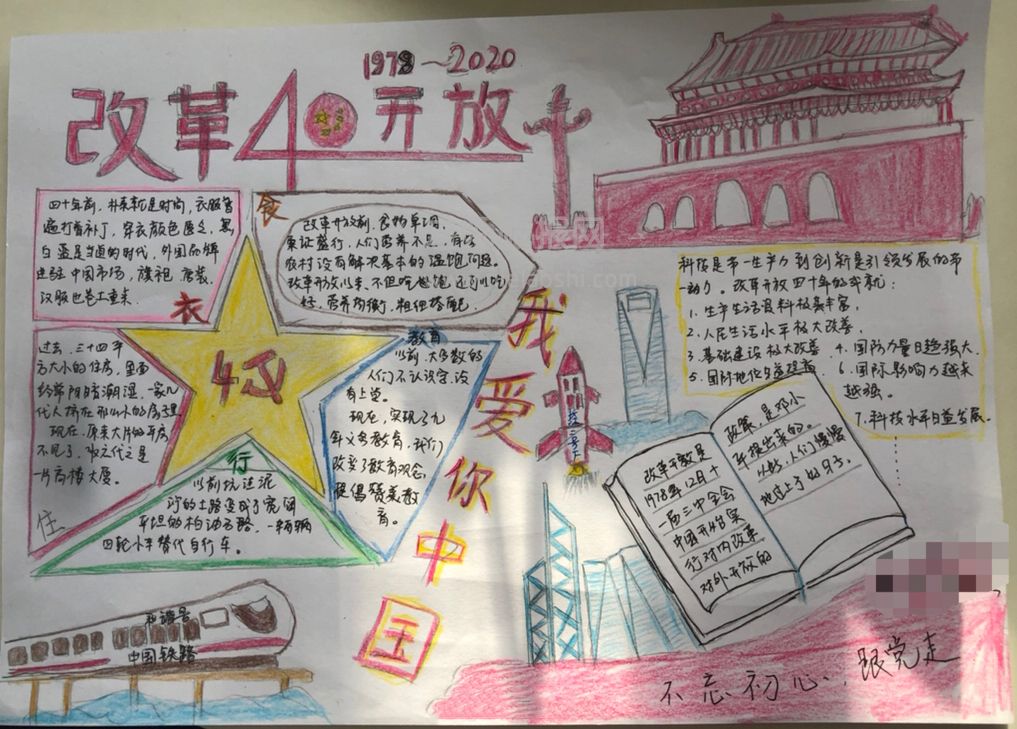 1978~2020
改革40开放
四十年前，朴素就是时尚，衣服普
遍打着补丁，穿衣颜色匮乏，黑
白蓝是当道的时代，外国品牌
进驻中国市场，旗袍、唐装、
汉服也卷土重来
衣
食
改革开放前，食物单调，
票证盛行，人们营养不足，有的
农村没有解决基本的温饱问题。
改革开放以来，不但吃
好，营养均衡，粗细搭配
过去，三十四平
方大小的住房，里面
经常阴暗潮湿，一家几
代人挤在那小小的房子里
现在，原来大片的平房
不见了，取而代之是
一片高楼大厦。
住
40
行
以前坑洼泥
泞的土路变成了宽阔
平坦的柏油马路，一辆辆
四轮小车替代自行车。
教育
以前，大多数的
人们不认识字，没
有上学。
现在，实现了九
年义务教育，我们
改变了教育观念，
提倡赞美教
育。
我爱你中国
科技是第一生产力到创新是引领发展的第
一动力。改革开放四十年的成就：
1.生产生活资料极其丰富，
2.人民生活水平极大改善，
3.基础建设极大改善 4.国防力量日趋强大
5.国际地位日益提高 6.国际影响力越来
越强。
7.科技水平日益发展
改革开放是
1978年12月十
一届三中全会
中国开始实
行对内改革
对外开放的
政策，是邓小
平提出来的。
从此，人们慢慢
地过上了好日子。
和谐号
中国铁路
不忘初心，跟党走